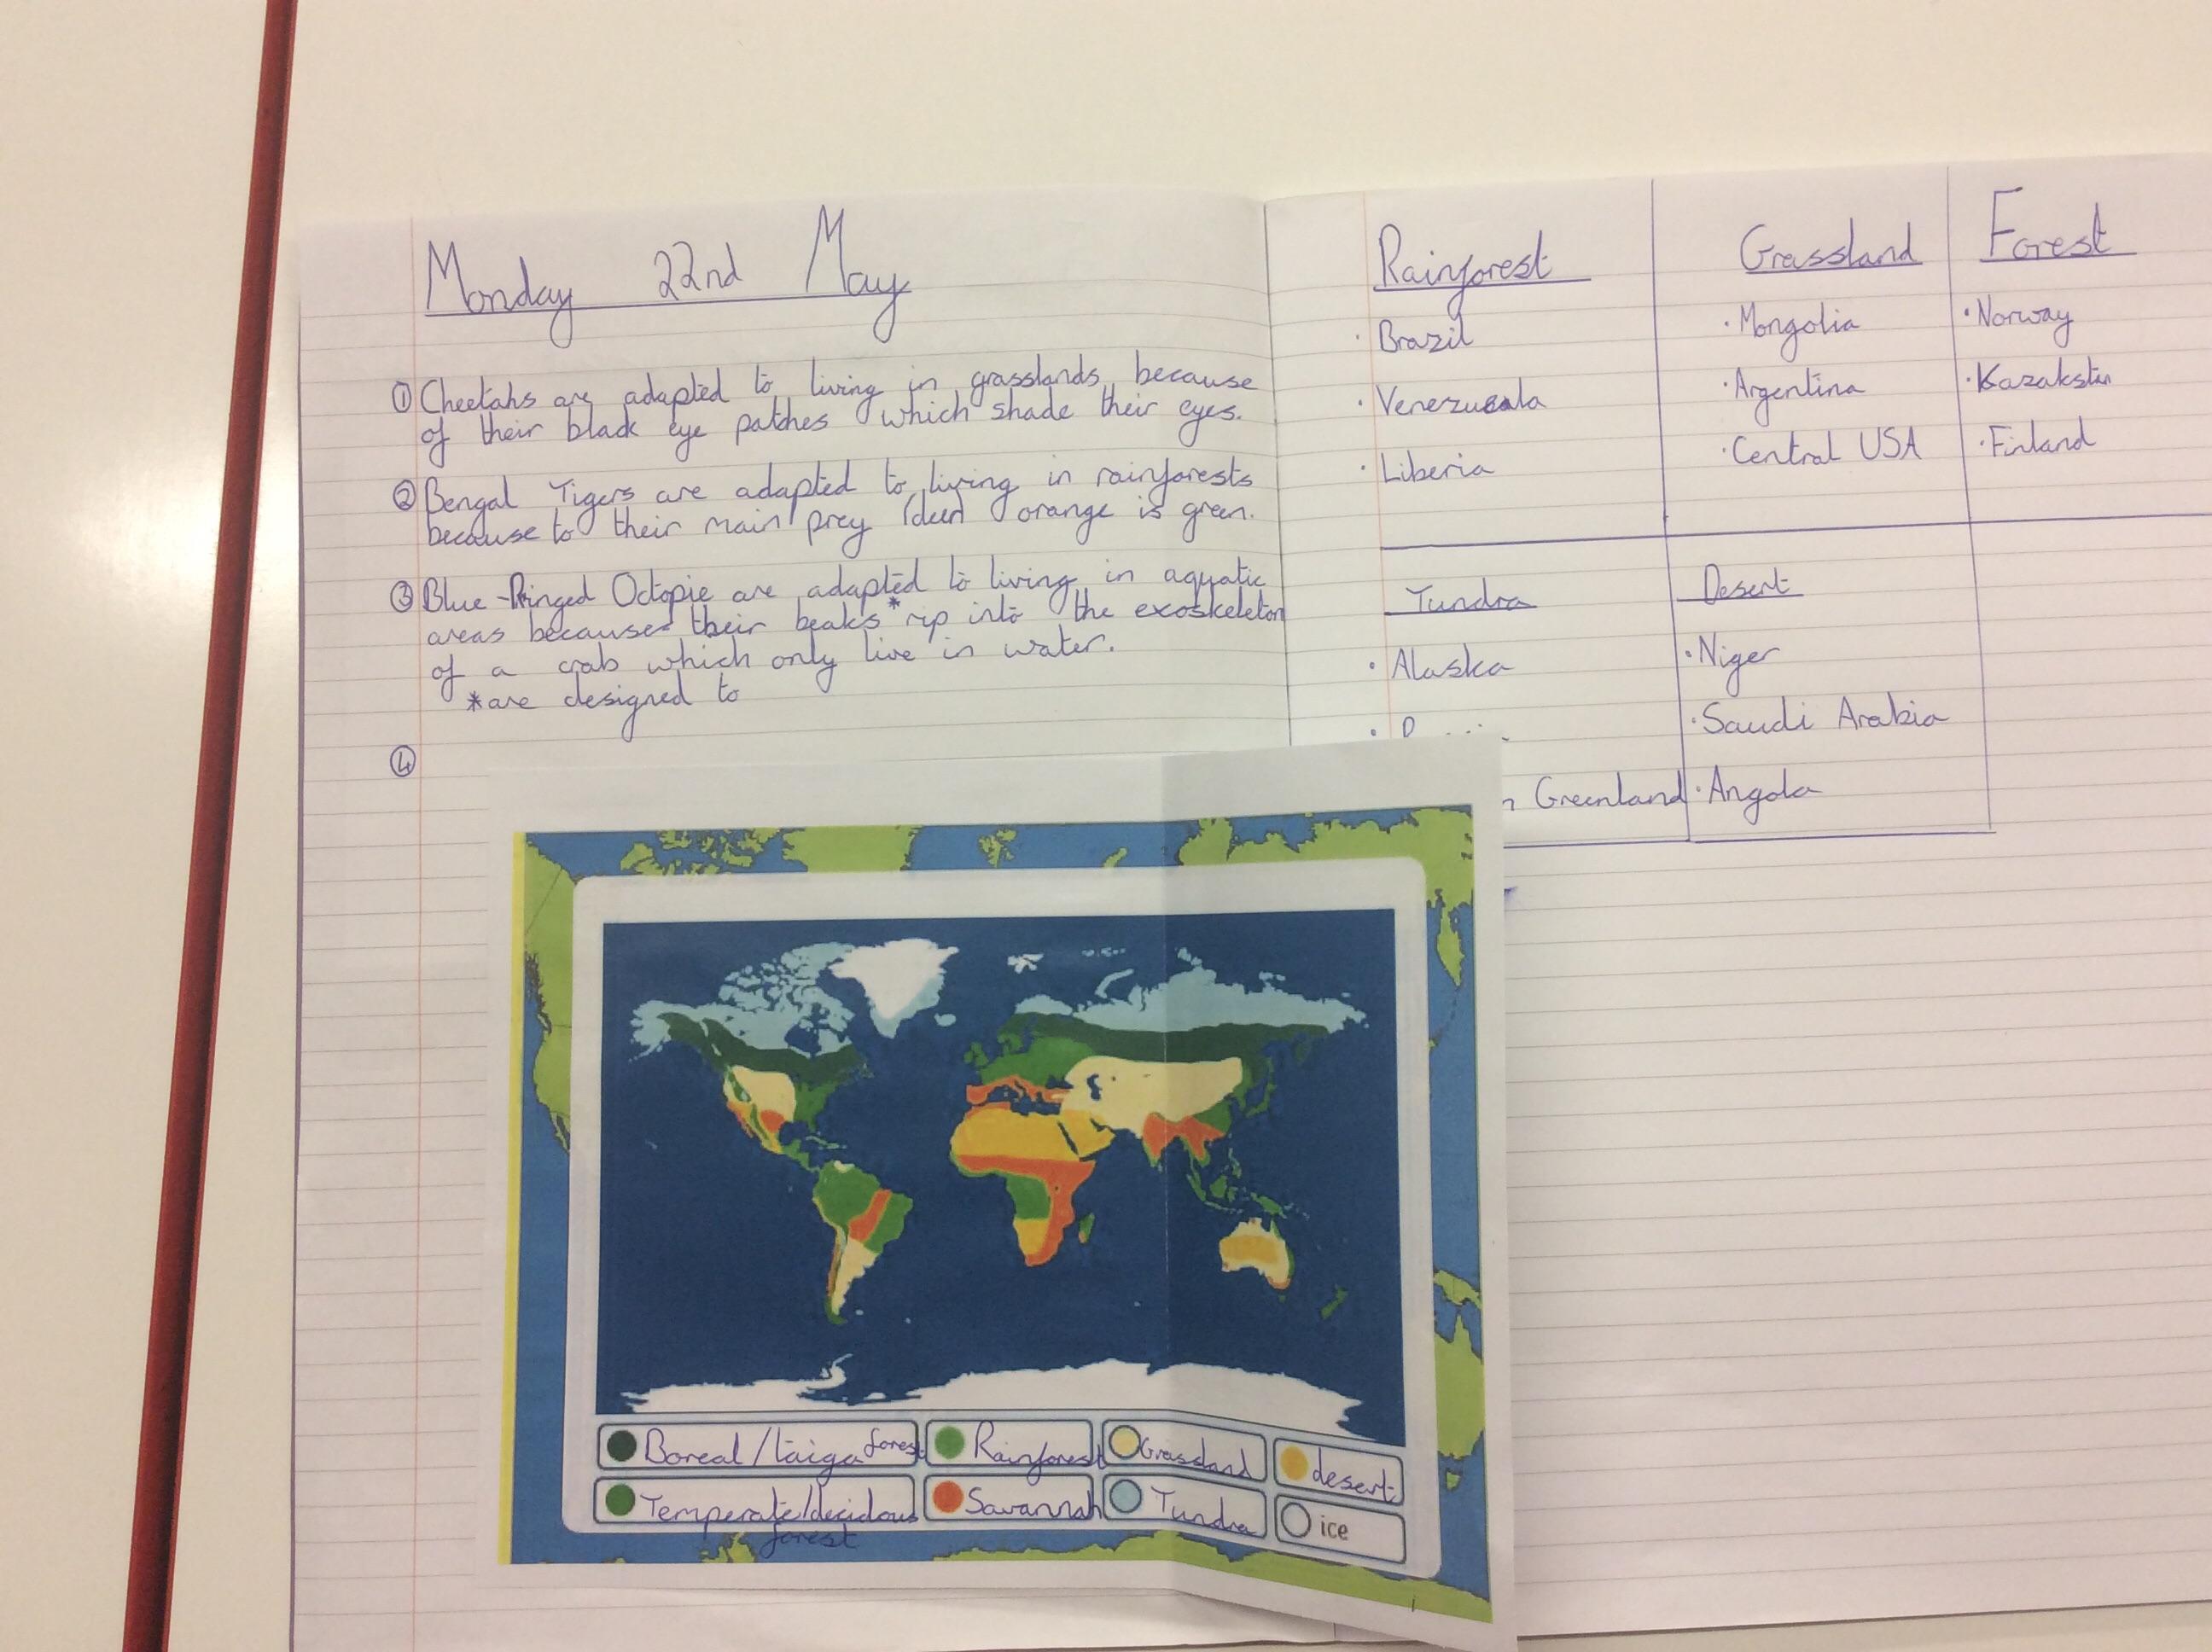 Monday 22nd May
① Cheetahs are adapted to living in grasslands because
of their black eye patches which shade their eyes.
② Bengal Tigers are adapted to living in rainforests
because to their main prey (deer) orange is green.
③ Blue-Ringed Octopie are adapted to living in aquatic
areas because their beaks * rip into the exoskeleton
of a crab which only live in water.
*are designed to
④
Rainforest
· Brazil
· Venezuala
· Liberia
Grassland
· Mongolia
· Argentina
· Central USA
Forest
· Norway
· Kazakstan
· Finland
Tundra
· Alaska
Greenland
Desert
· Niger
· Saudi Arabia
· Angola
Boreal/taiga forest
Rainforest
Grassland
desert
Temperate/decidous
forest
Savannah
Tundra
ice